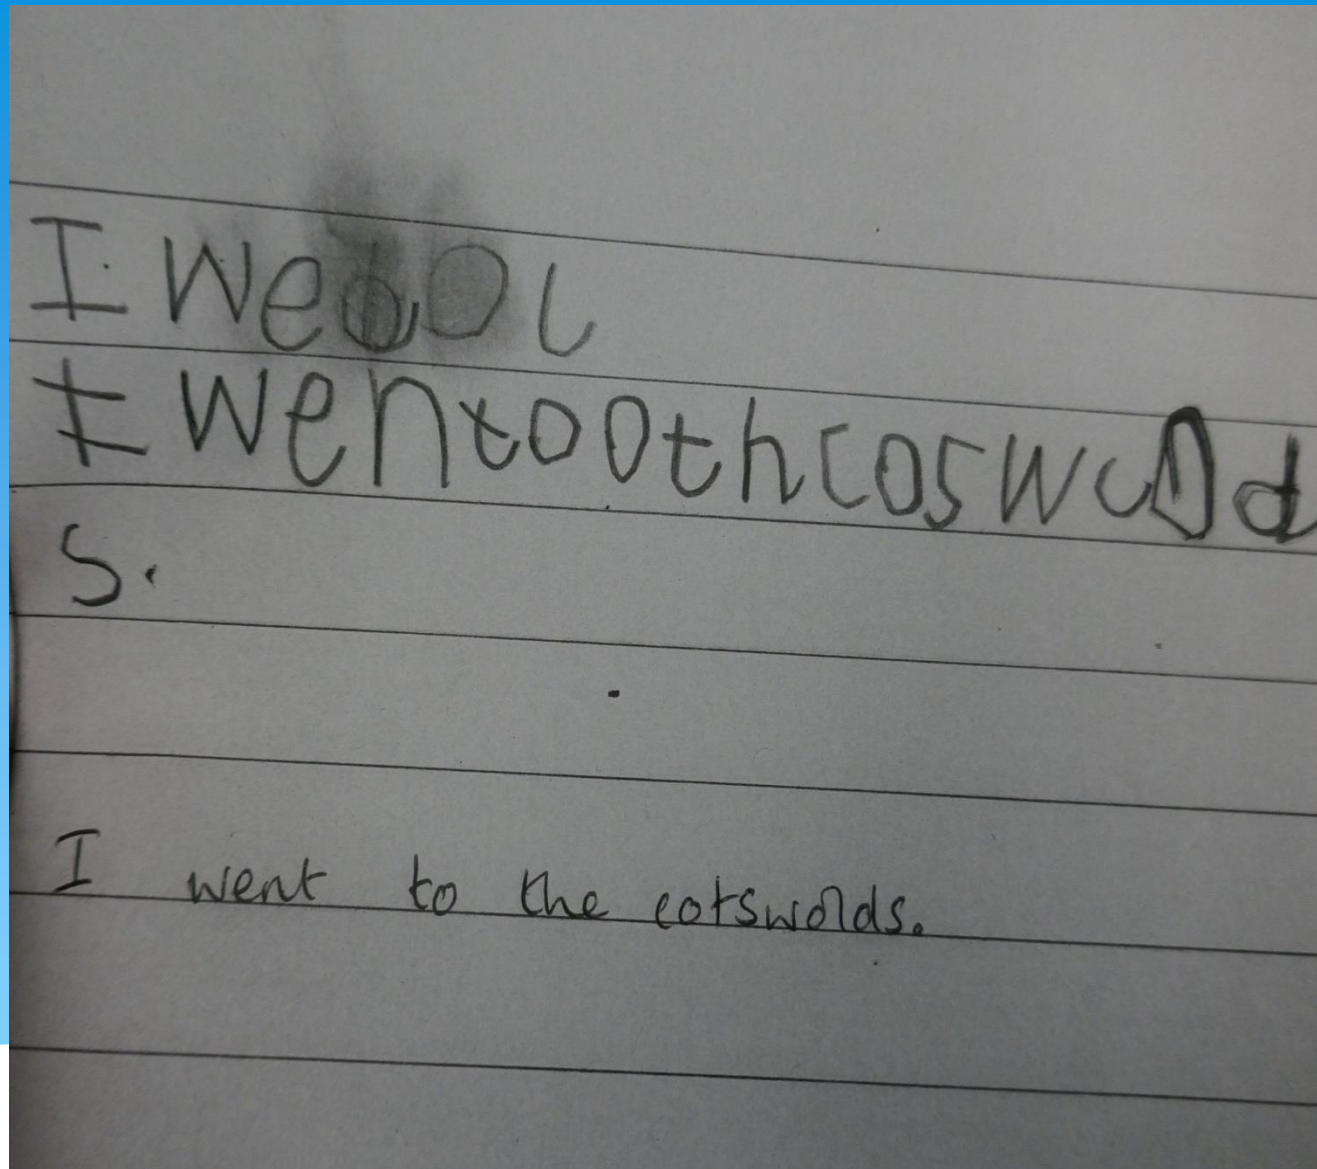 I we
I wentoothcoswolds
s.
I went to the cotswolds.